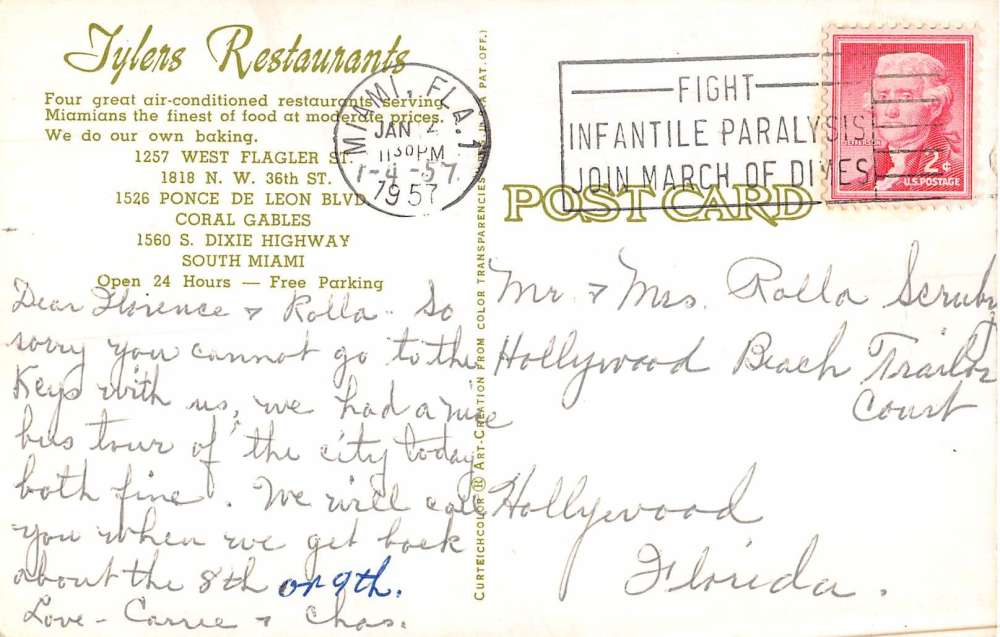 Tylers Restaurants
Four great air-conditioned restaurants serving
Miamians the finest of food at moderate prices.
We do our own baking.
1257 WEST FLAGLER ST.
1818 N. W. 36th ST.
1526 PONCE DE LEON BLVD
CORAL GABLES
1560 S. DIXIE HIGHWAY
SOUTH MIAMI
Open 24 Hours — Free Parking
MIAMI, FLA. 1
JAN
1130 PM
1-4-57
1957
FIGHT
INFANTILE PARALYSIS
JOIN MARCH OF DIMES
JEFFERSON
2¢
U.S. POSTAGE
POST CARD
CURTEICHCOLOR ® ART-CREATION FROM COLOR TRANSPARENCIES U.S.A PAT. OFF.)
Dear Florence & Rolla - So
sorry you cannot go to the
Keys with us, we had a nice
bus tour of the city today
both fine. We will call
you when we get back
about the 8th or 9th.
Love - Carrie & Chas.
Mr. & Mrs. Rolla Scruby
Hollywood Beach Trailor
Court
Hollywood
Florida.